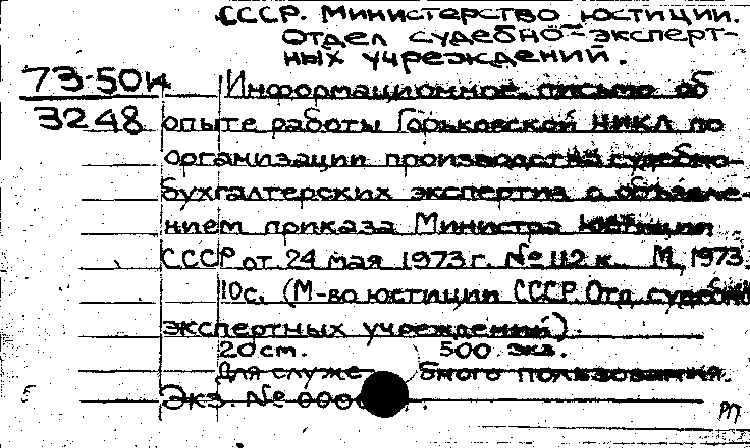 СССР. Министерство юстиции.
Отдел судебно-эксперт-
ных учреждений.
73-50к
3248
Информационное письмо об
опыте работы Горьковской НИКЛ по
организации производства судебно-
бухгалтерских экспертиз с объявле-
нием приказа Министра юстиции
СССР от 24 мая 1973 г. № 112 к. М, 1973
10с. (М-во юстиции СССР. Отд. судебно
экспертных учреждений).
20 ст. 500 экз.
Для служебного пользования.
Экз. № 000
РП